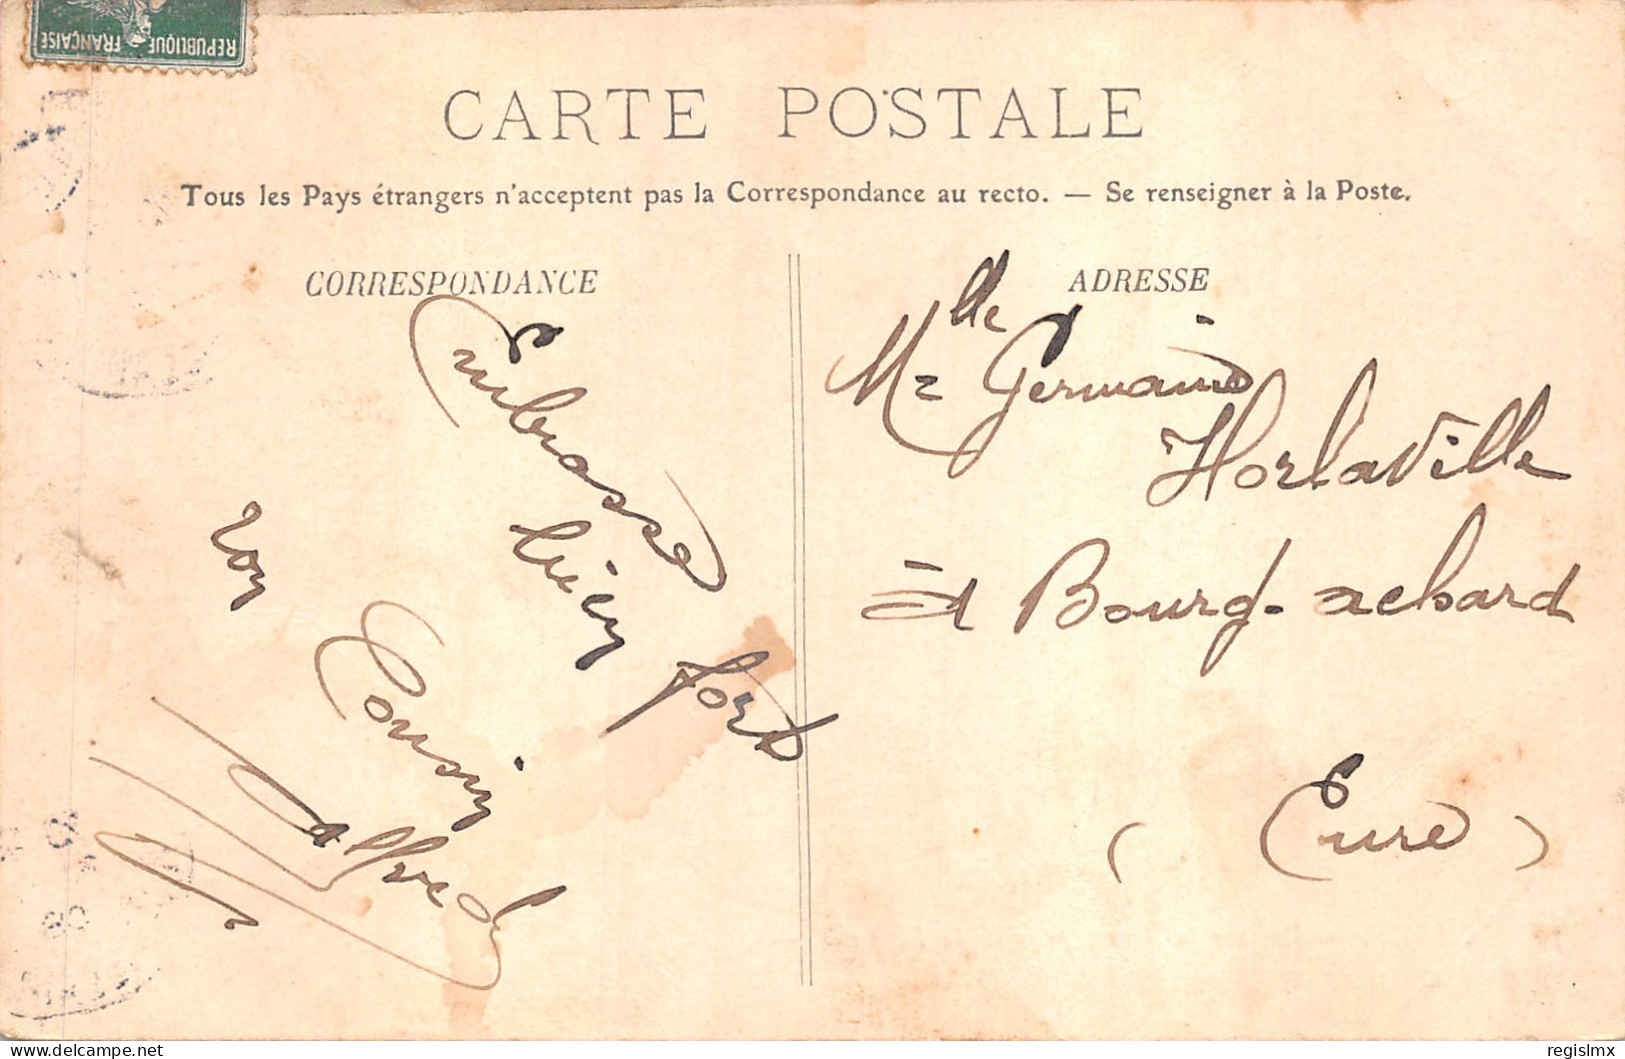 REPUBLIQUE FRANÇAISE
CARTE POSTALE
Tous les Pays étrangers n'acceptent pas la Correspondance au recto. — Se renseigner à la Poste.
CORRESPONDANCE
Embrasse
bien fort
ton Cousin
Alfred
ADRESSE
Mlle Germaine
Horlaville
à Bourg-achard
(Eure)
www.delcampe.net
regislmx